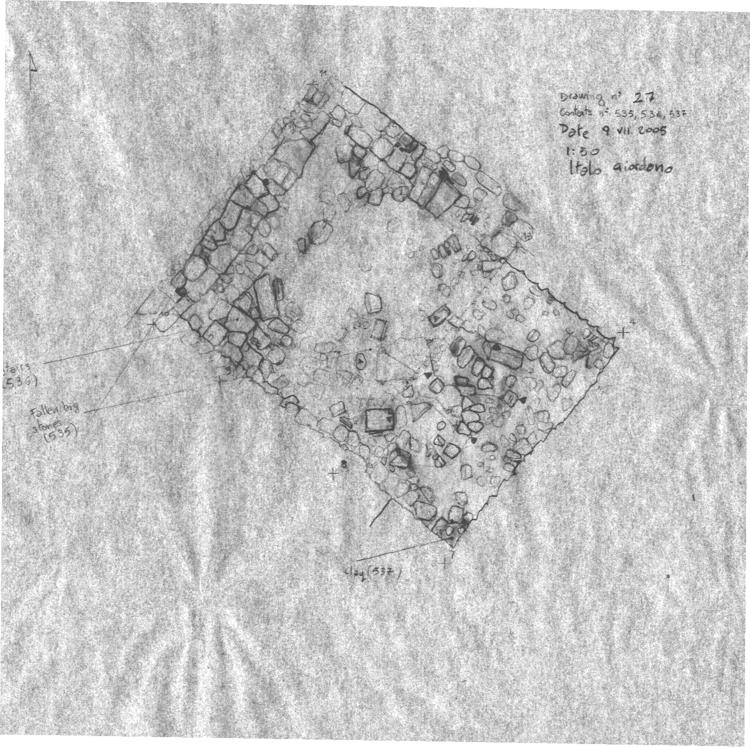 Drawing n° 27
Contexts n° 535, 536, 537
Date 9 VII 2005
1:50
Italo Giordano
(536)
Fallen big
stones
(535)
Clay (537)